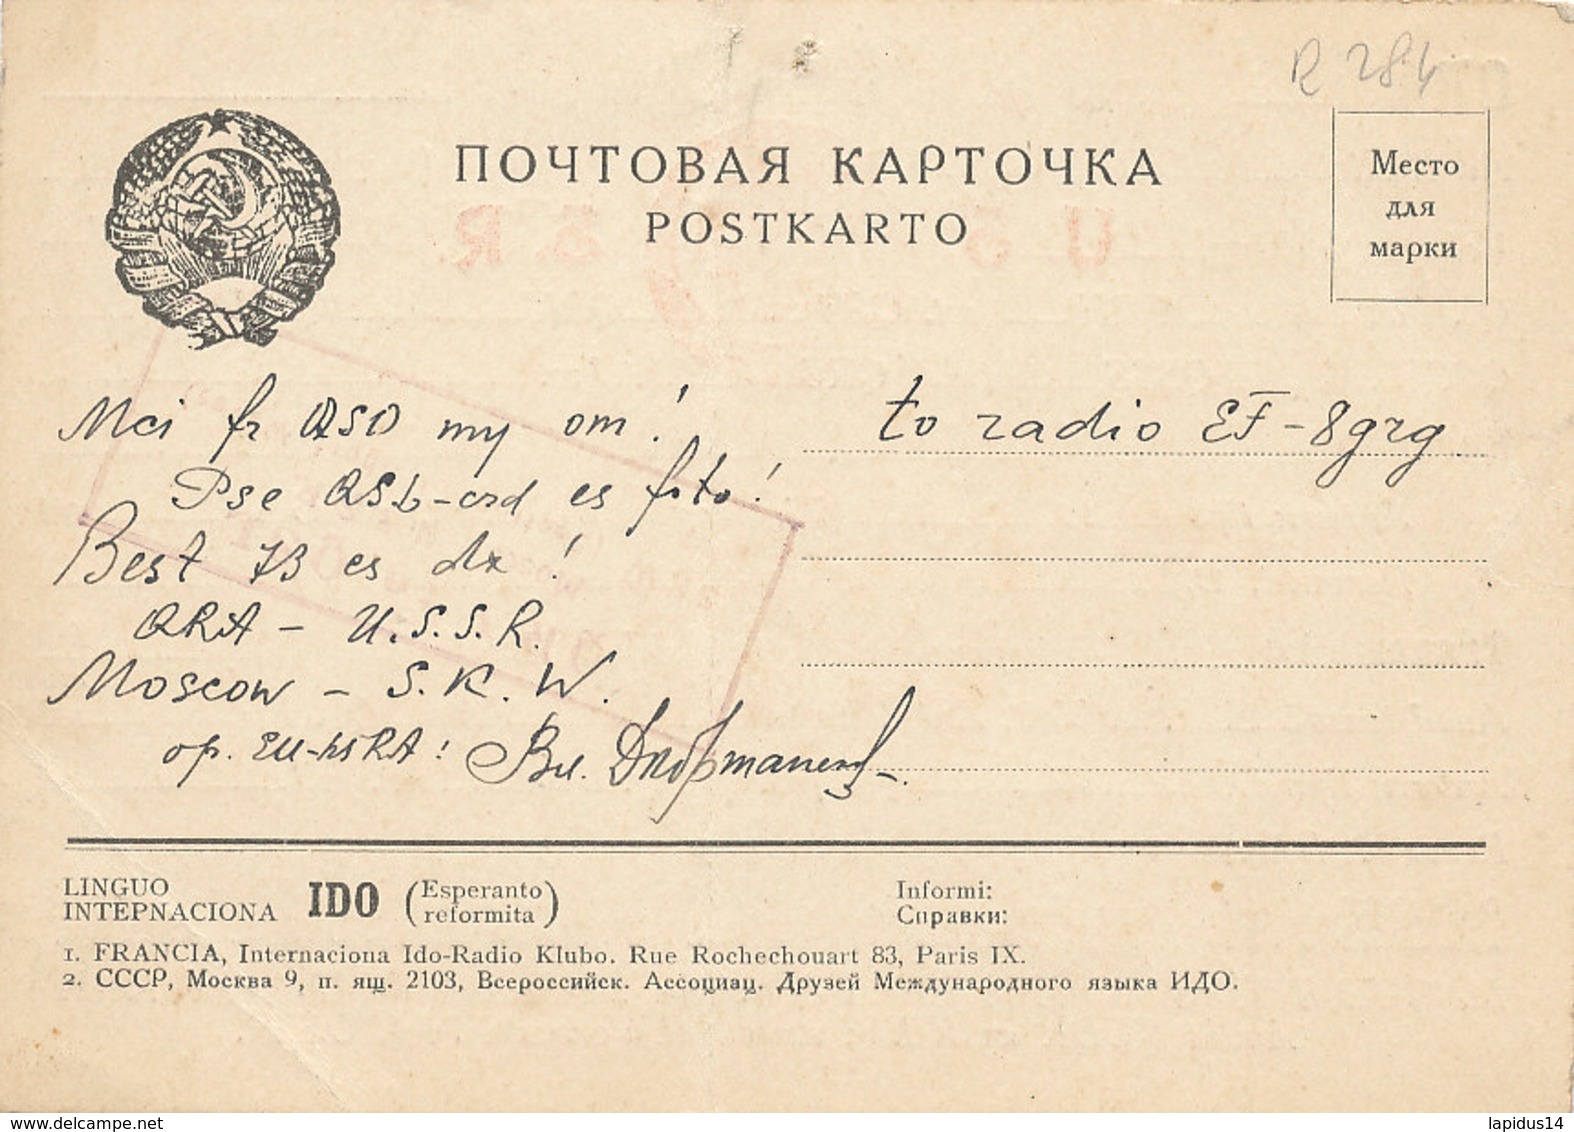 R 284
ПОЧТОВАЯ КАРТОЧКА
POSTKARTO
Место
для
марки
U. S. S. R.
Mci fr QSO my om!
Pse QSL-crd es foto!
Best 73 es dx!
QRA - U.S.S.R.
Moscow - S.K.W.
op. EU- : Вл.
to radio EF-8grg
LINGUO
INTEPNACIONA IDO (Esperanto
reformita)
Informi:
Справки:
1. FRANCIA, Internaciona Ido-Radio Klubo. Rue Rochechouart 83, Paris IX.
2. СССР, Москва 9, п. ящ. 2103, Всероссийск. Ассоциац. Друзей Международного языка ИДО.
delcampe.net
lapidus14